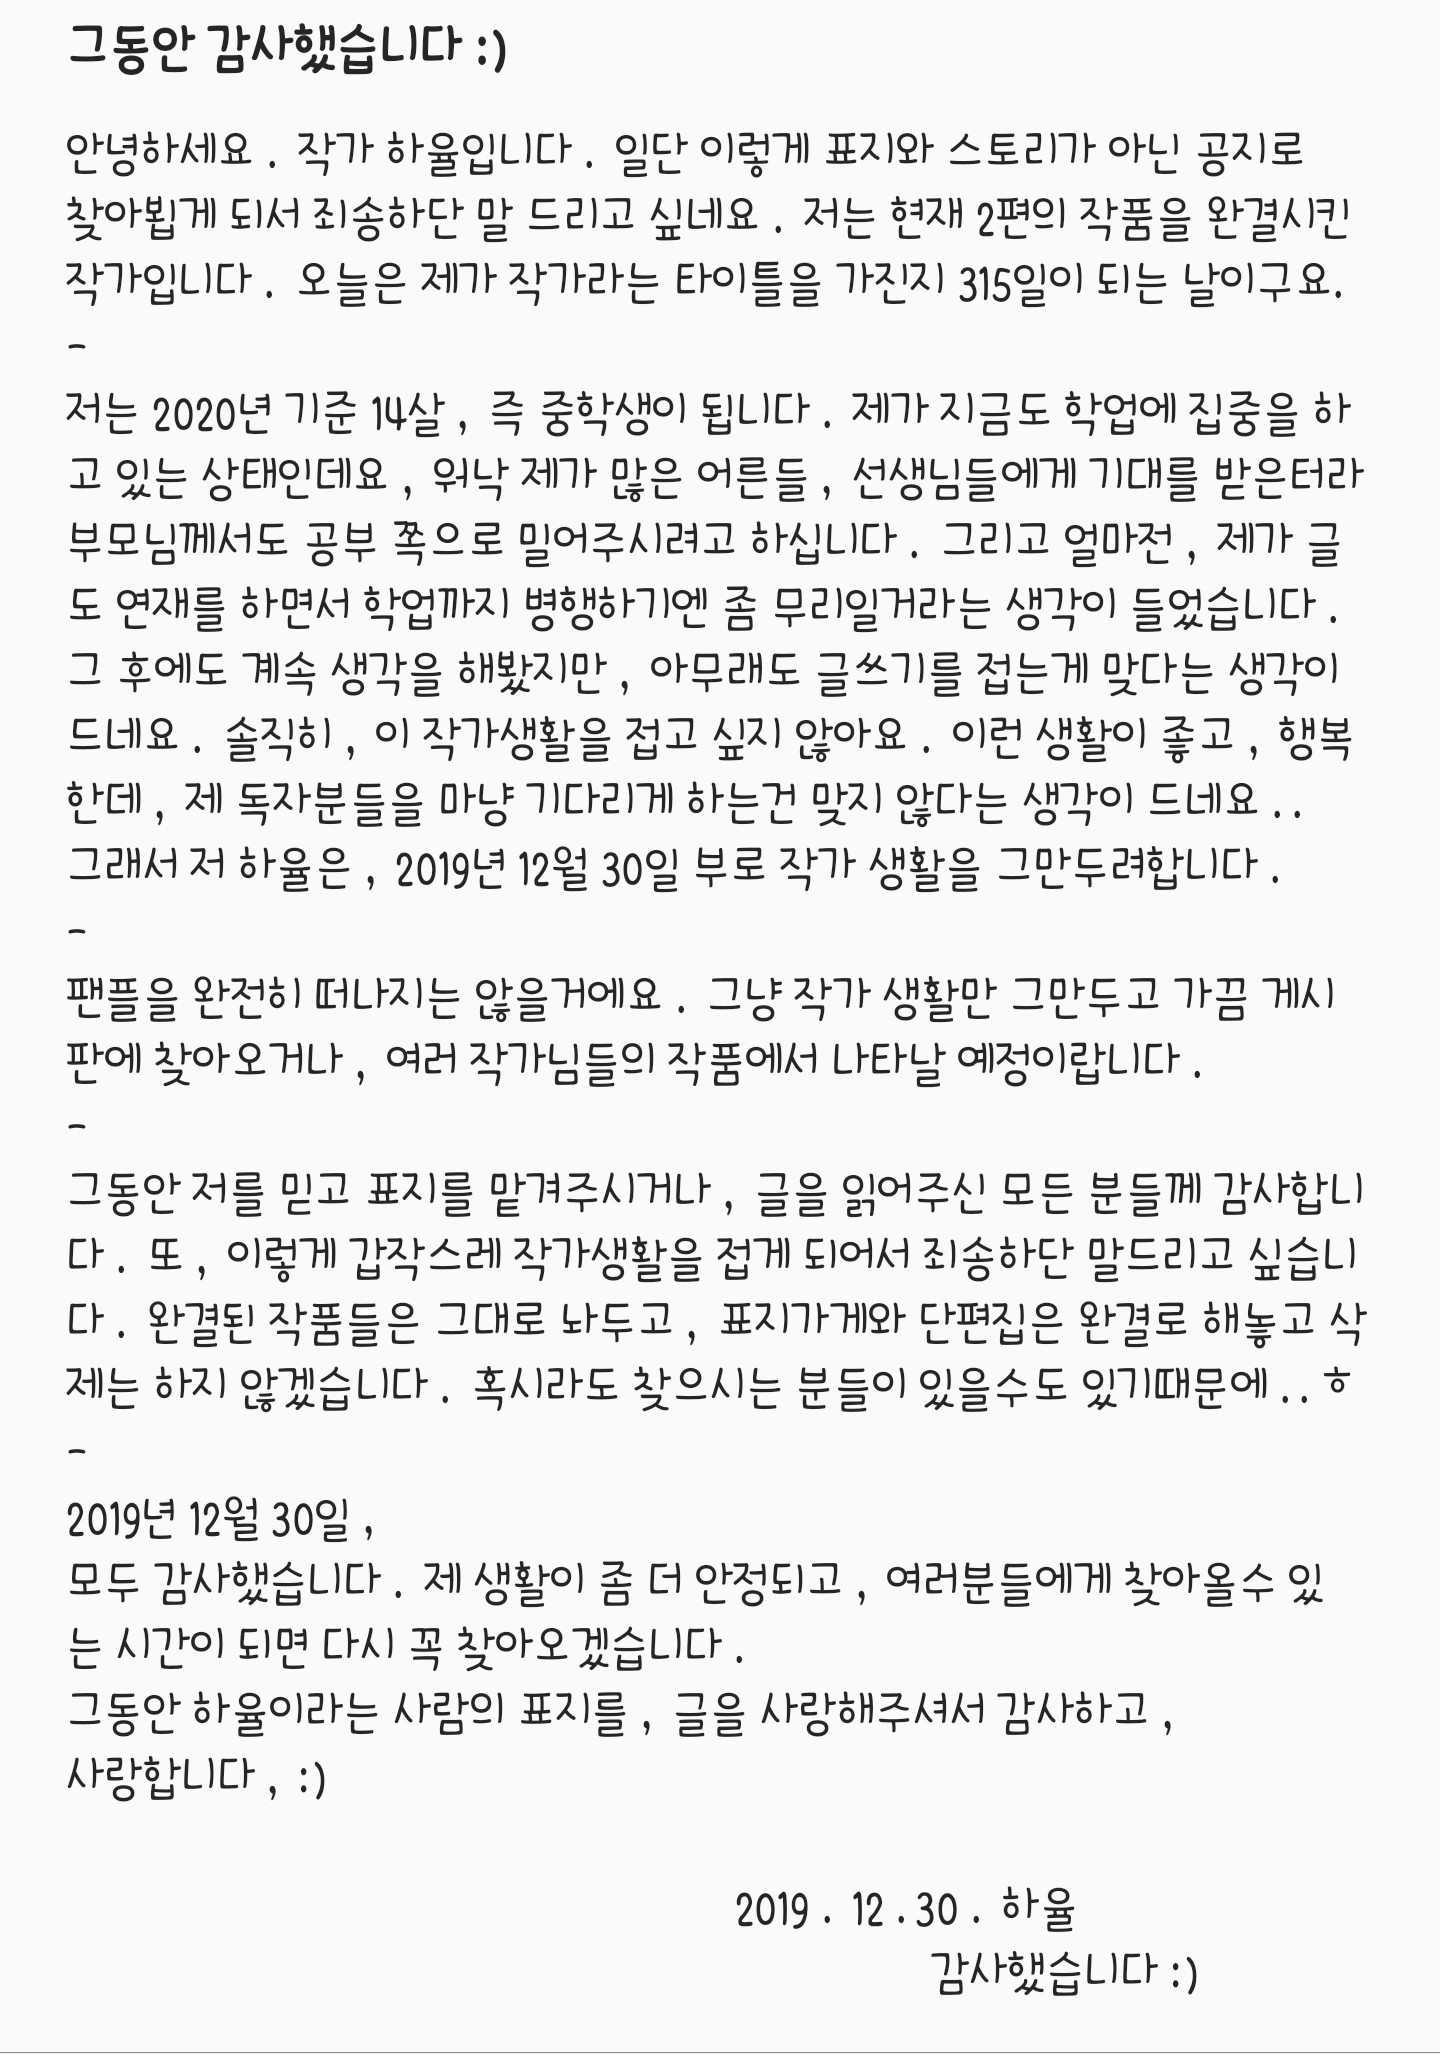 그동안 감사했습니다 :)
안녕하세요 . 작가 하율입니다 . 일단 이렇게 표지와 스토리가 아닌 공지로
찾아뵙게 되서 죄송하단 말 드리고 싶네요 . 저는 현재 2편의 작품을 완결시킨
작가입니다 . 오늘은 제가 작가라는 타이틀을 가진지 315일이 되는 날이구요.
-
저는 2020년 기준 14살 , 즉 중학생이 됩니다 . 제가 지금도 학업에 집중을 하
고 있는 상태인데요 , 워낙 제가 많은 어른들 , 선생님들에게 기대를 받은터라
부모님께서도 공부 쪽으로 밀어주시려고 하십니다 . 그리고 얼마전 , 제가 글
도 연재를 하면서 학업까지 병행하기엔 좀 무리일거라는 생각이 들었습니다 .
그 후에도 계속 생각을 해봤지만 , 아무래도 글쓰기를 접는게 맞다는 생각이
드네요 . 솔직히 , 이 작가생활을 접고 싶지 않아요 . 이런 생활이 좋고 , 행복
한데 , 제 독자분들을 마냥 기다리게 하는건 맞지 않다는 생각이 드네요 . .
그래서 저 하율은 , 2019년 12월 30일 부로 작가 생활을 그만두려합니다 .
-
팬플을 완전히 떠나지는 않을거에요 . 그냥 작가 생활만 그만두고 가끔 게시
판에 찾아오거나 , 여러 작가님들의 작품에서 나타날 예정이랍니다 .
-
그동안 저를 믿고 표지를 맡겨주시거나 , 글을 읽어주신 모든 분들께 감사합니
다 . 또 , 이렇게 갑작스레 작가생활을 접게 되어서 죄송하단 말드리고 싶습니
다 . 완결된 작품들은 그대로 놔두고 , 표지가게와 단편집은 완결로 해놓고 삭
제는 하지 않겠습니다 . 혹시라도 찾으시는 분들이 있을수도 있기때문에 . . ㅎ
-
2019년 12월 30일 ,
모두 감사했습니다 . 제 생활이 좀 더 안정되고 , 여러분들에게 찾아올수 있
는 시간이 되면 다시 꼭 찾아오겠습니다 .
그동안 하율이라는 사람의 표지를 , 글을 사랑해주셔서 감사하고 ,
사랑합니다 , :)
2019 . 12 . 30 . 하율
감사했습니다 :)